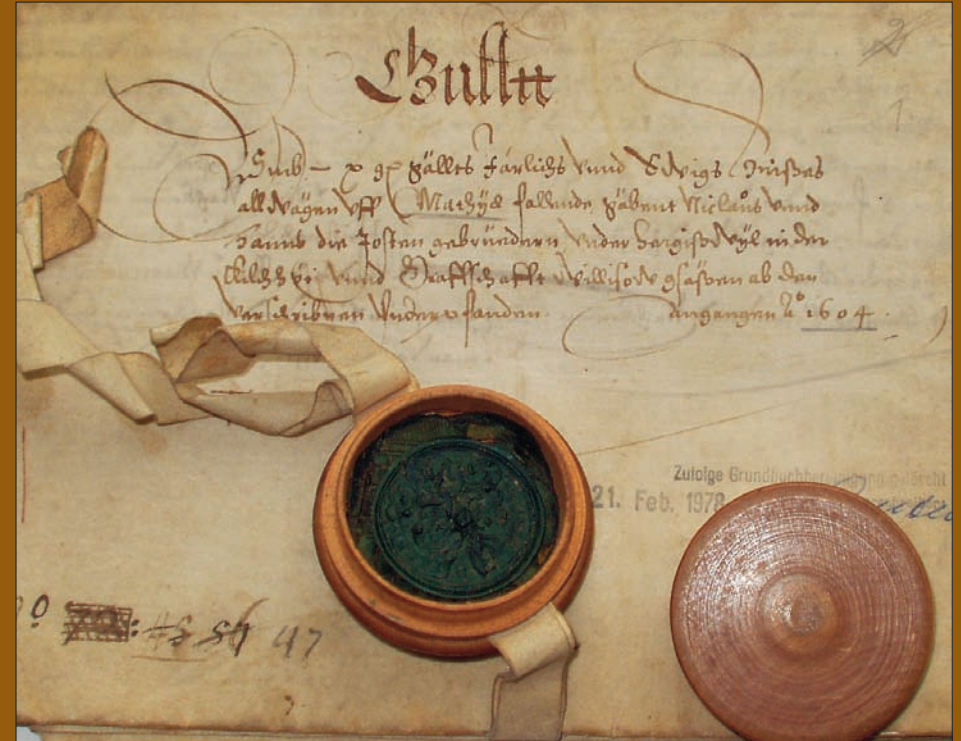 Güllt
Umb – x gl gällts Järlichs vnnd Ewigs Zinßes
all wägen vff Mathÿs fallende, gäbent Niclaus vnnd
Hanns die Josten gebrüedern vnder hergiswyl in der
Kilchhöri vnnd Graffschafft Willisow gsässen ab den
verschribnen Vnderpfanden. angangen Aº 1604.
Zufolge Grundbuchbereinigung gelöscht
21. Feb. 1978
47